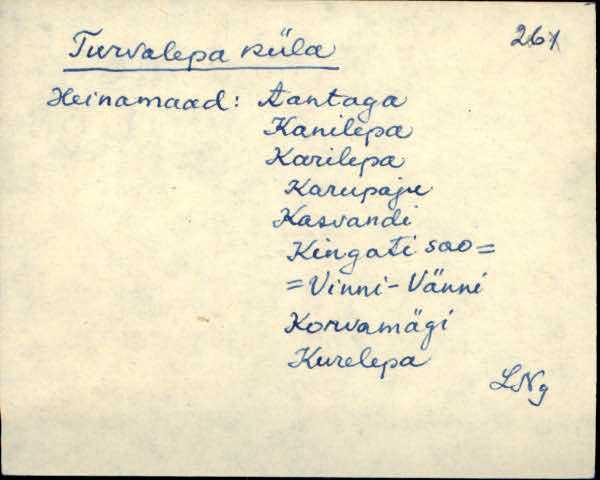 Turvalepa küla 261
Heinamaad: Aantaga
Kanilepa
Karilepa
Karupaju
Kasvandi
Kingati soo =
= Vinni - Vänni
Korvamägi
Kurelepa
LNg